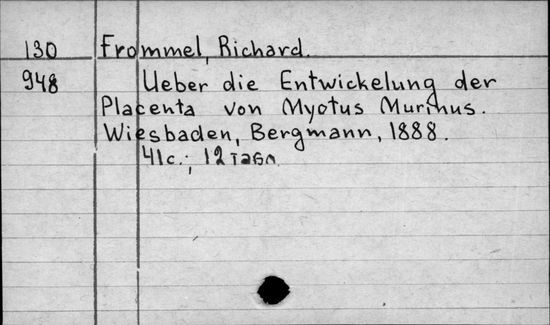 130 Frommel, Richard.
948 Ueber die Entwickelung der
Placenta von Myotus Murinus.
Wiesbaden, Bergmann, 1888.
41c.; 12 табл.